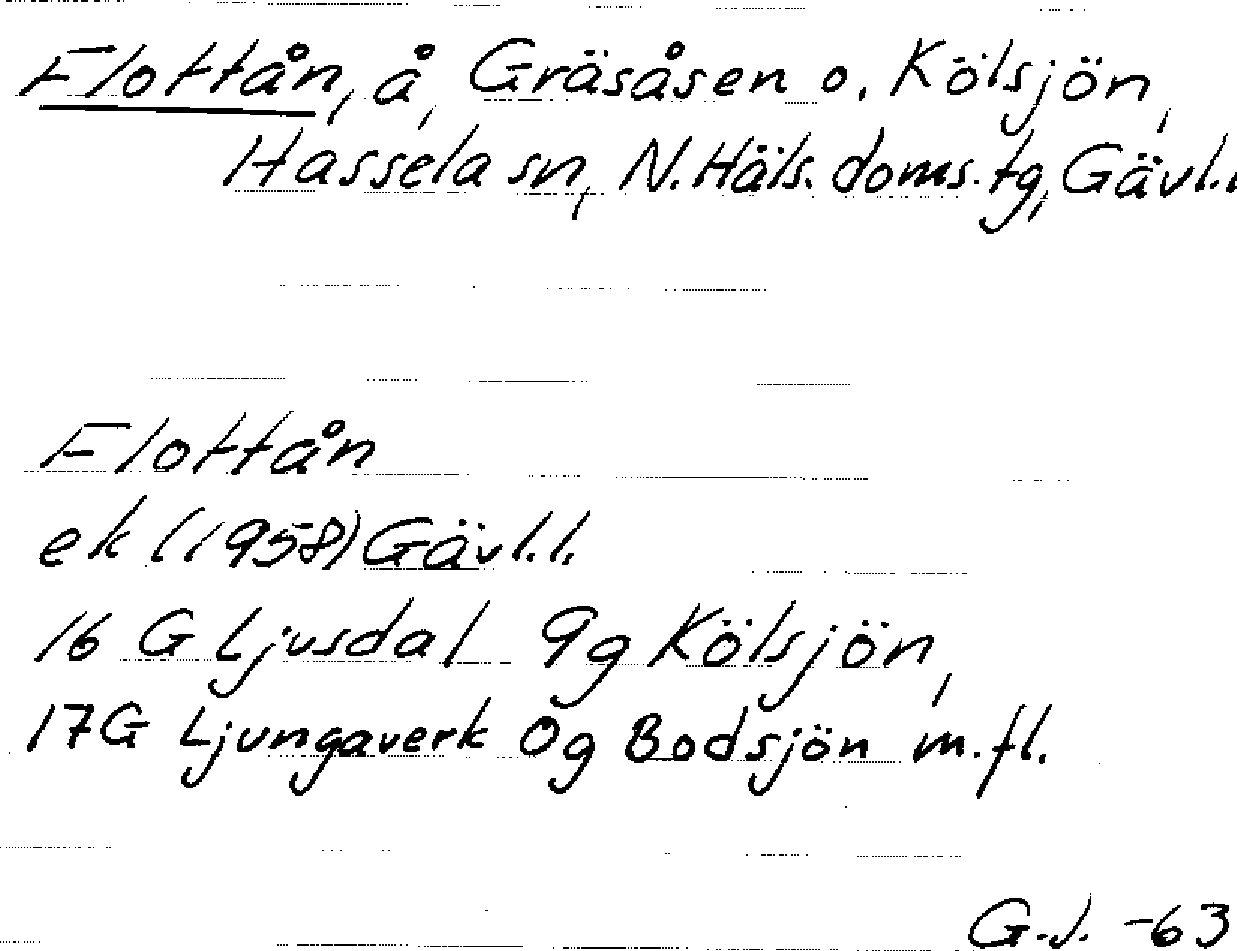 Flottån, å, Gräsåsen o. Kölsjön,
Hassela sn, N. Häls. doms. tg, Gävl.l
Flottån
ek (1958) Gävl.l.
16 G Ljusdal 9g Kölsjön,
17G Ljungaverk 0g Bodsjön m.fl.
G.J. -63